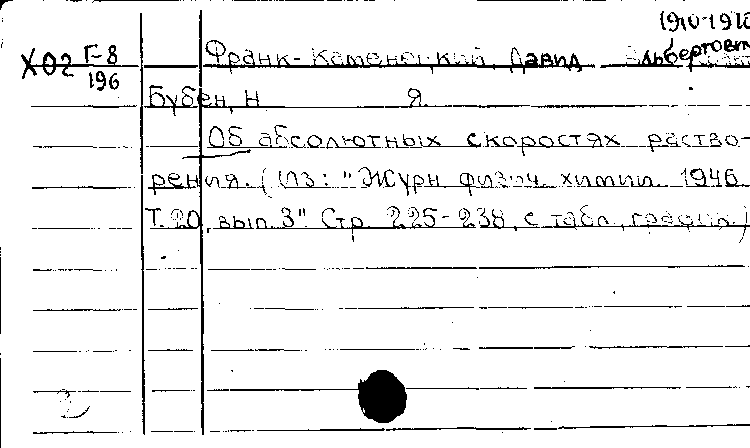 1910-1970
Х02 Г-8 Франк-Каменецкий, Давид Альбертович
196
Бубен, Н Я.
Об абсолютных скоростях раство-
рения. (Из: "Журн физич. химии. 1946.
Т. 20, вып. 3" Стр. 225-238, с табл., график.)
2